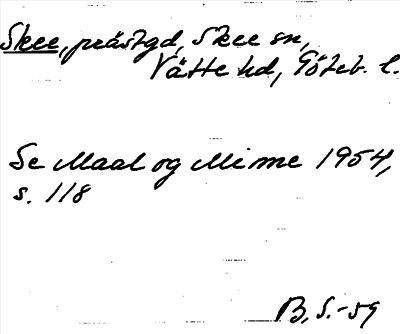 Skee, prästgd, Skee sn,
Vätte hd, Göteb. l.
Se Maal og Minne 1954,
s. 118
B. S. -59